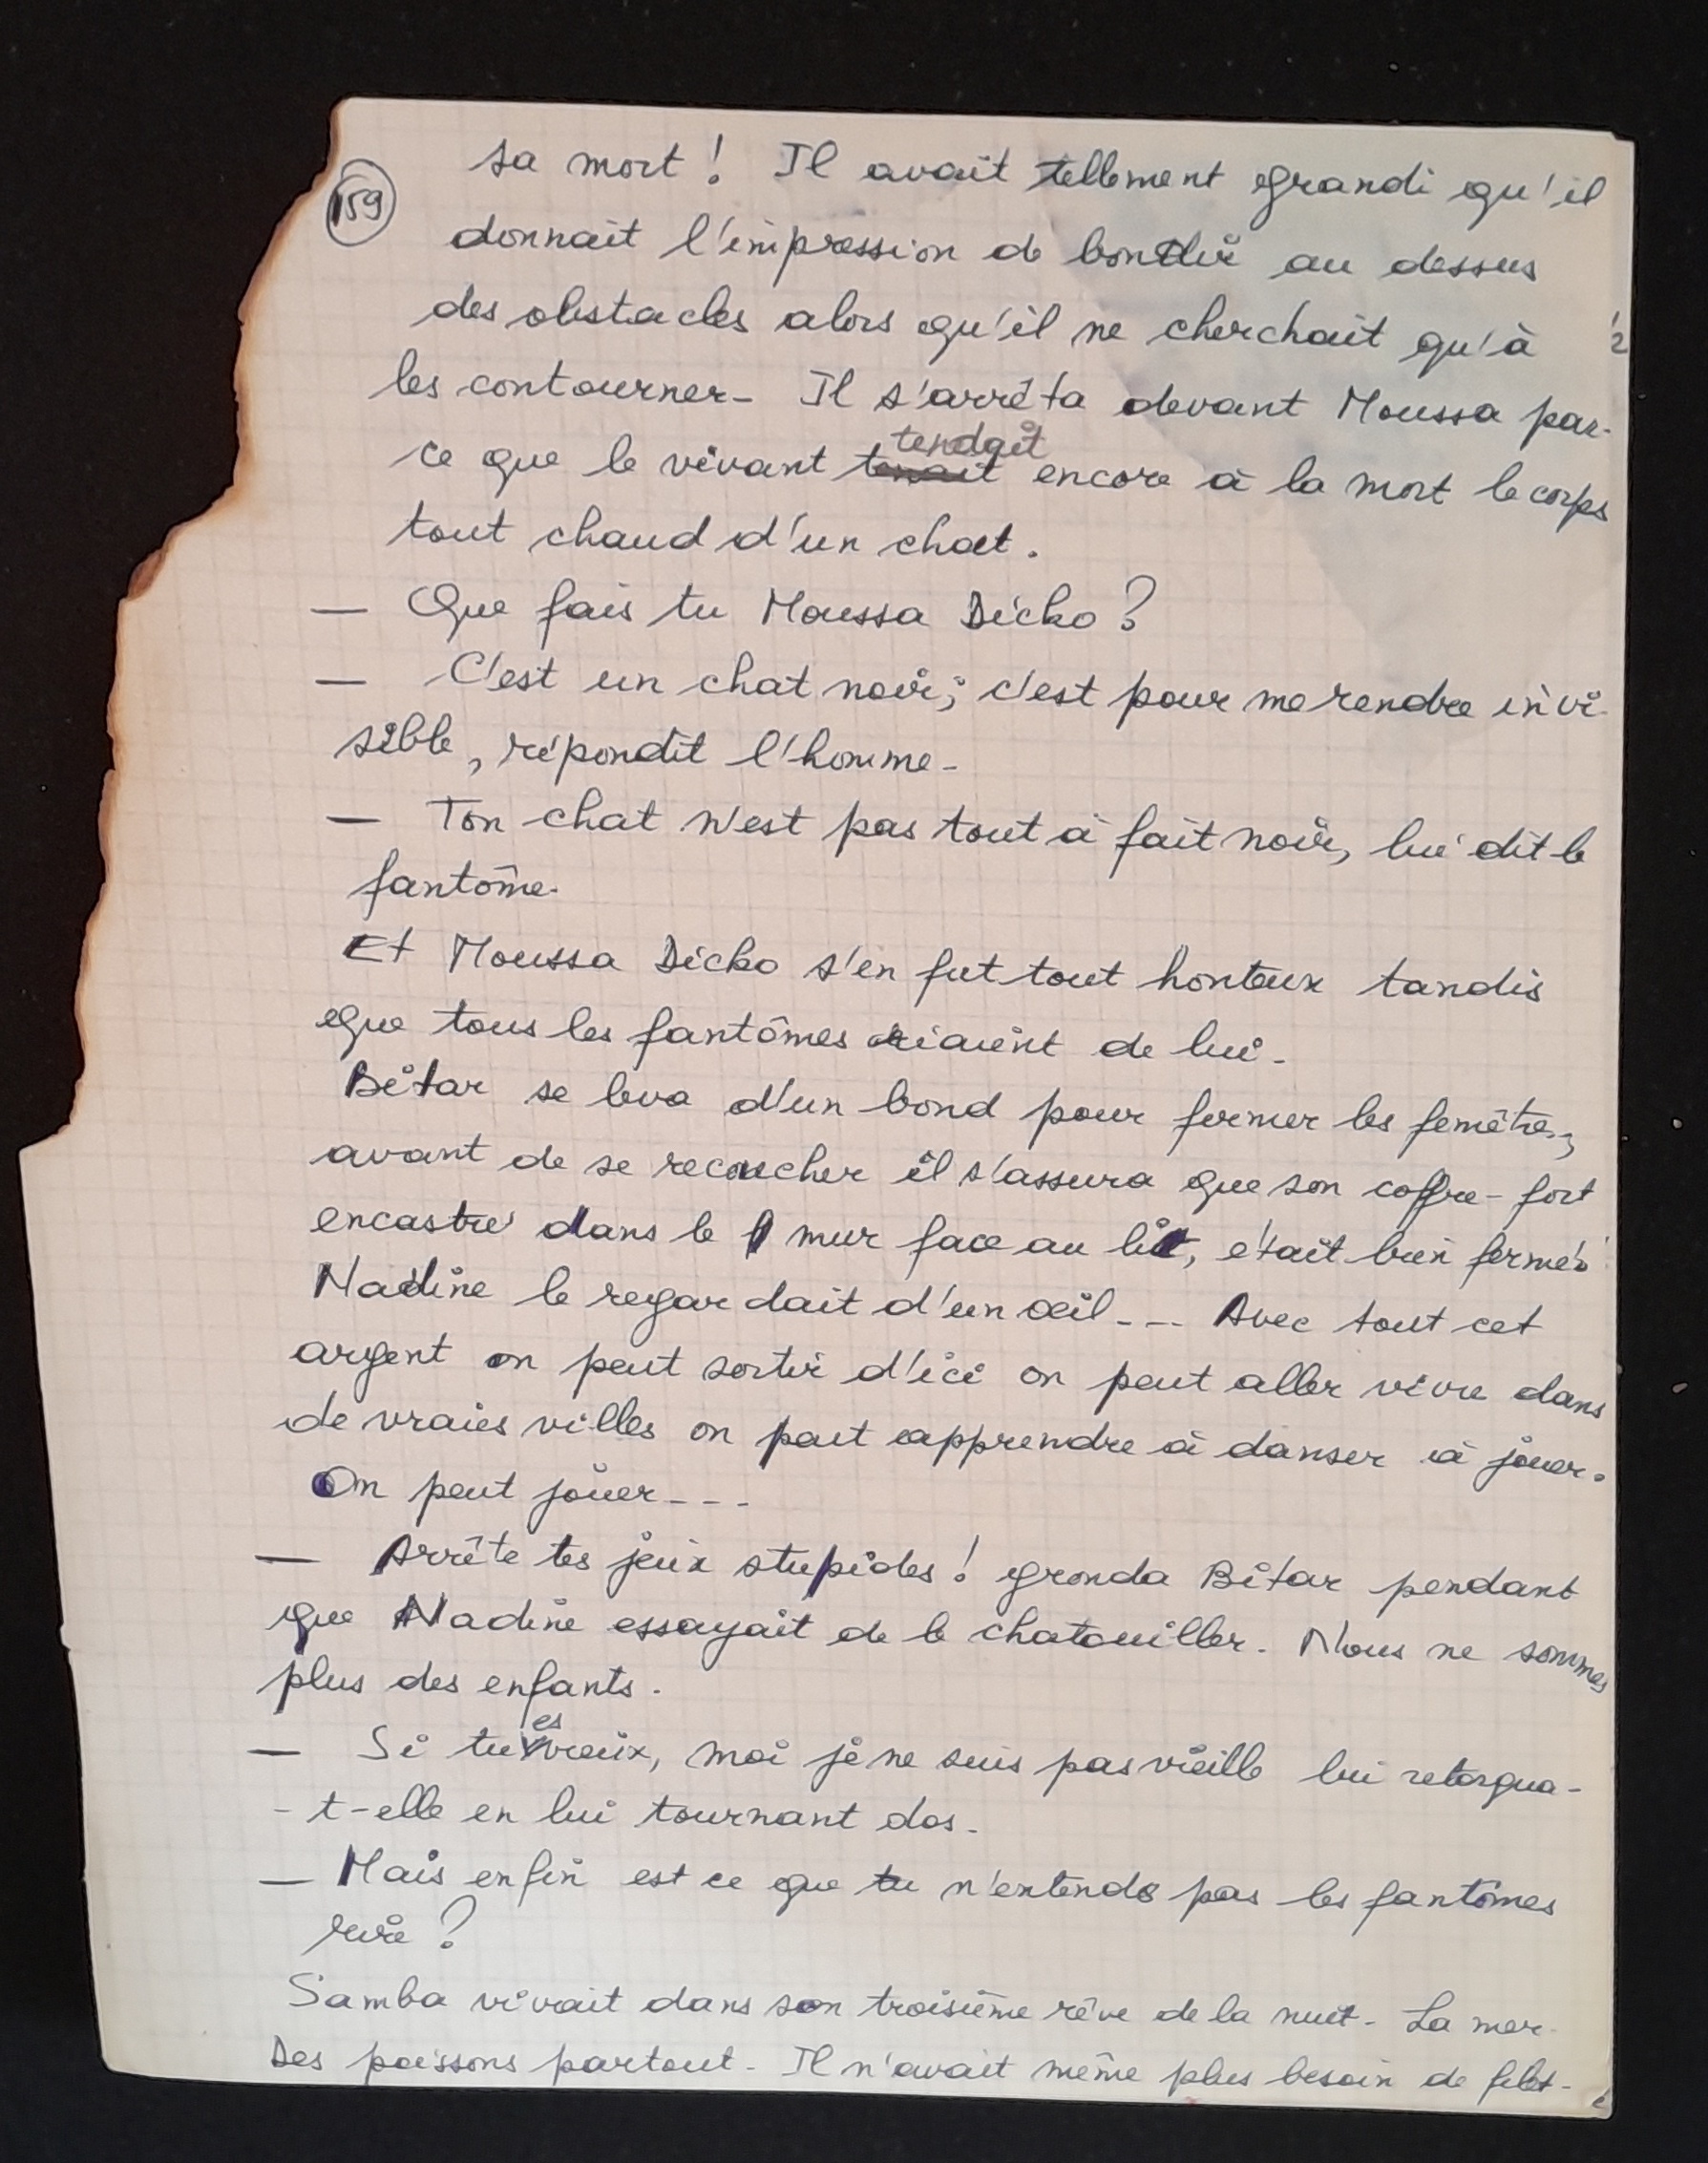 159
sa mort ! Il avait tellement grandi qu'il
donnait l'impression de bondir au dessus
des obstacles alors qu'il ne cherchait qu'à
les contourner - Il s'arrêta devant Moussa par-
ce que le vivant tenait tendait encore à la mort le corps
tout chaud d'un chat.
— Que fais tu Moussa Dicko ?
— C'est un chat noir ; c'est pour me rendre invi-
sible, répondit l'homme -
— Ton chat n'est pas tout à fait noir, lui dit le
fantôme.
Et Moussa Dicko s'en fut tout honteux tandis
que tous les fantômes riaient de lui -
Bitar se leva d'un bond pour fermer les fenêtres ;
avant de se recoucher il s'assura que son coffre-fort
encastré dans le mur face au lit, était bien fermé.
Nadine le regardait d'un œil --- Avec tout cet
argent on peut sortir d'ici on peut aller vivre dans
de vraies villes on peut apprendre à danser à jouer.
On peut jouer ---
— Arrête tes jeux stupides ! gronda Bitar pendant
que Nadine essayait de le chatouiller. Nous ne sommes
plus des enfants.
— Si tu es vieux, moi je ne suis pas vieille lui retorqua-
- t-elle en lui tournant dos -
— Mais enfin est ce que tu n'entends pas les fantômes
rire ?
Samba vivait dans son troisième rêve de la nuit - La mer -
Des poissons partout - Il n'avait même plus besoin de filet -